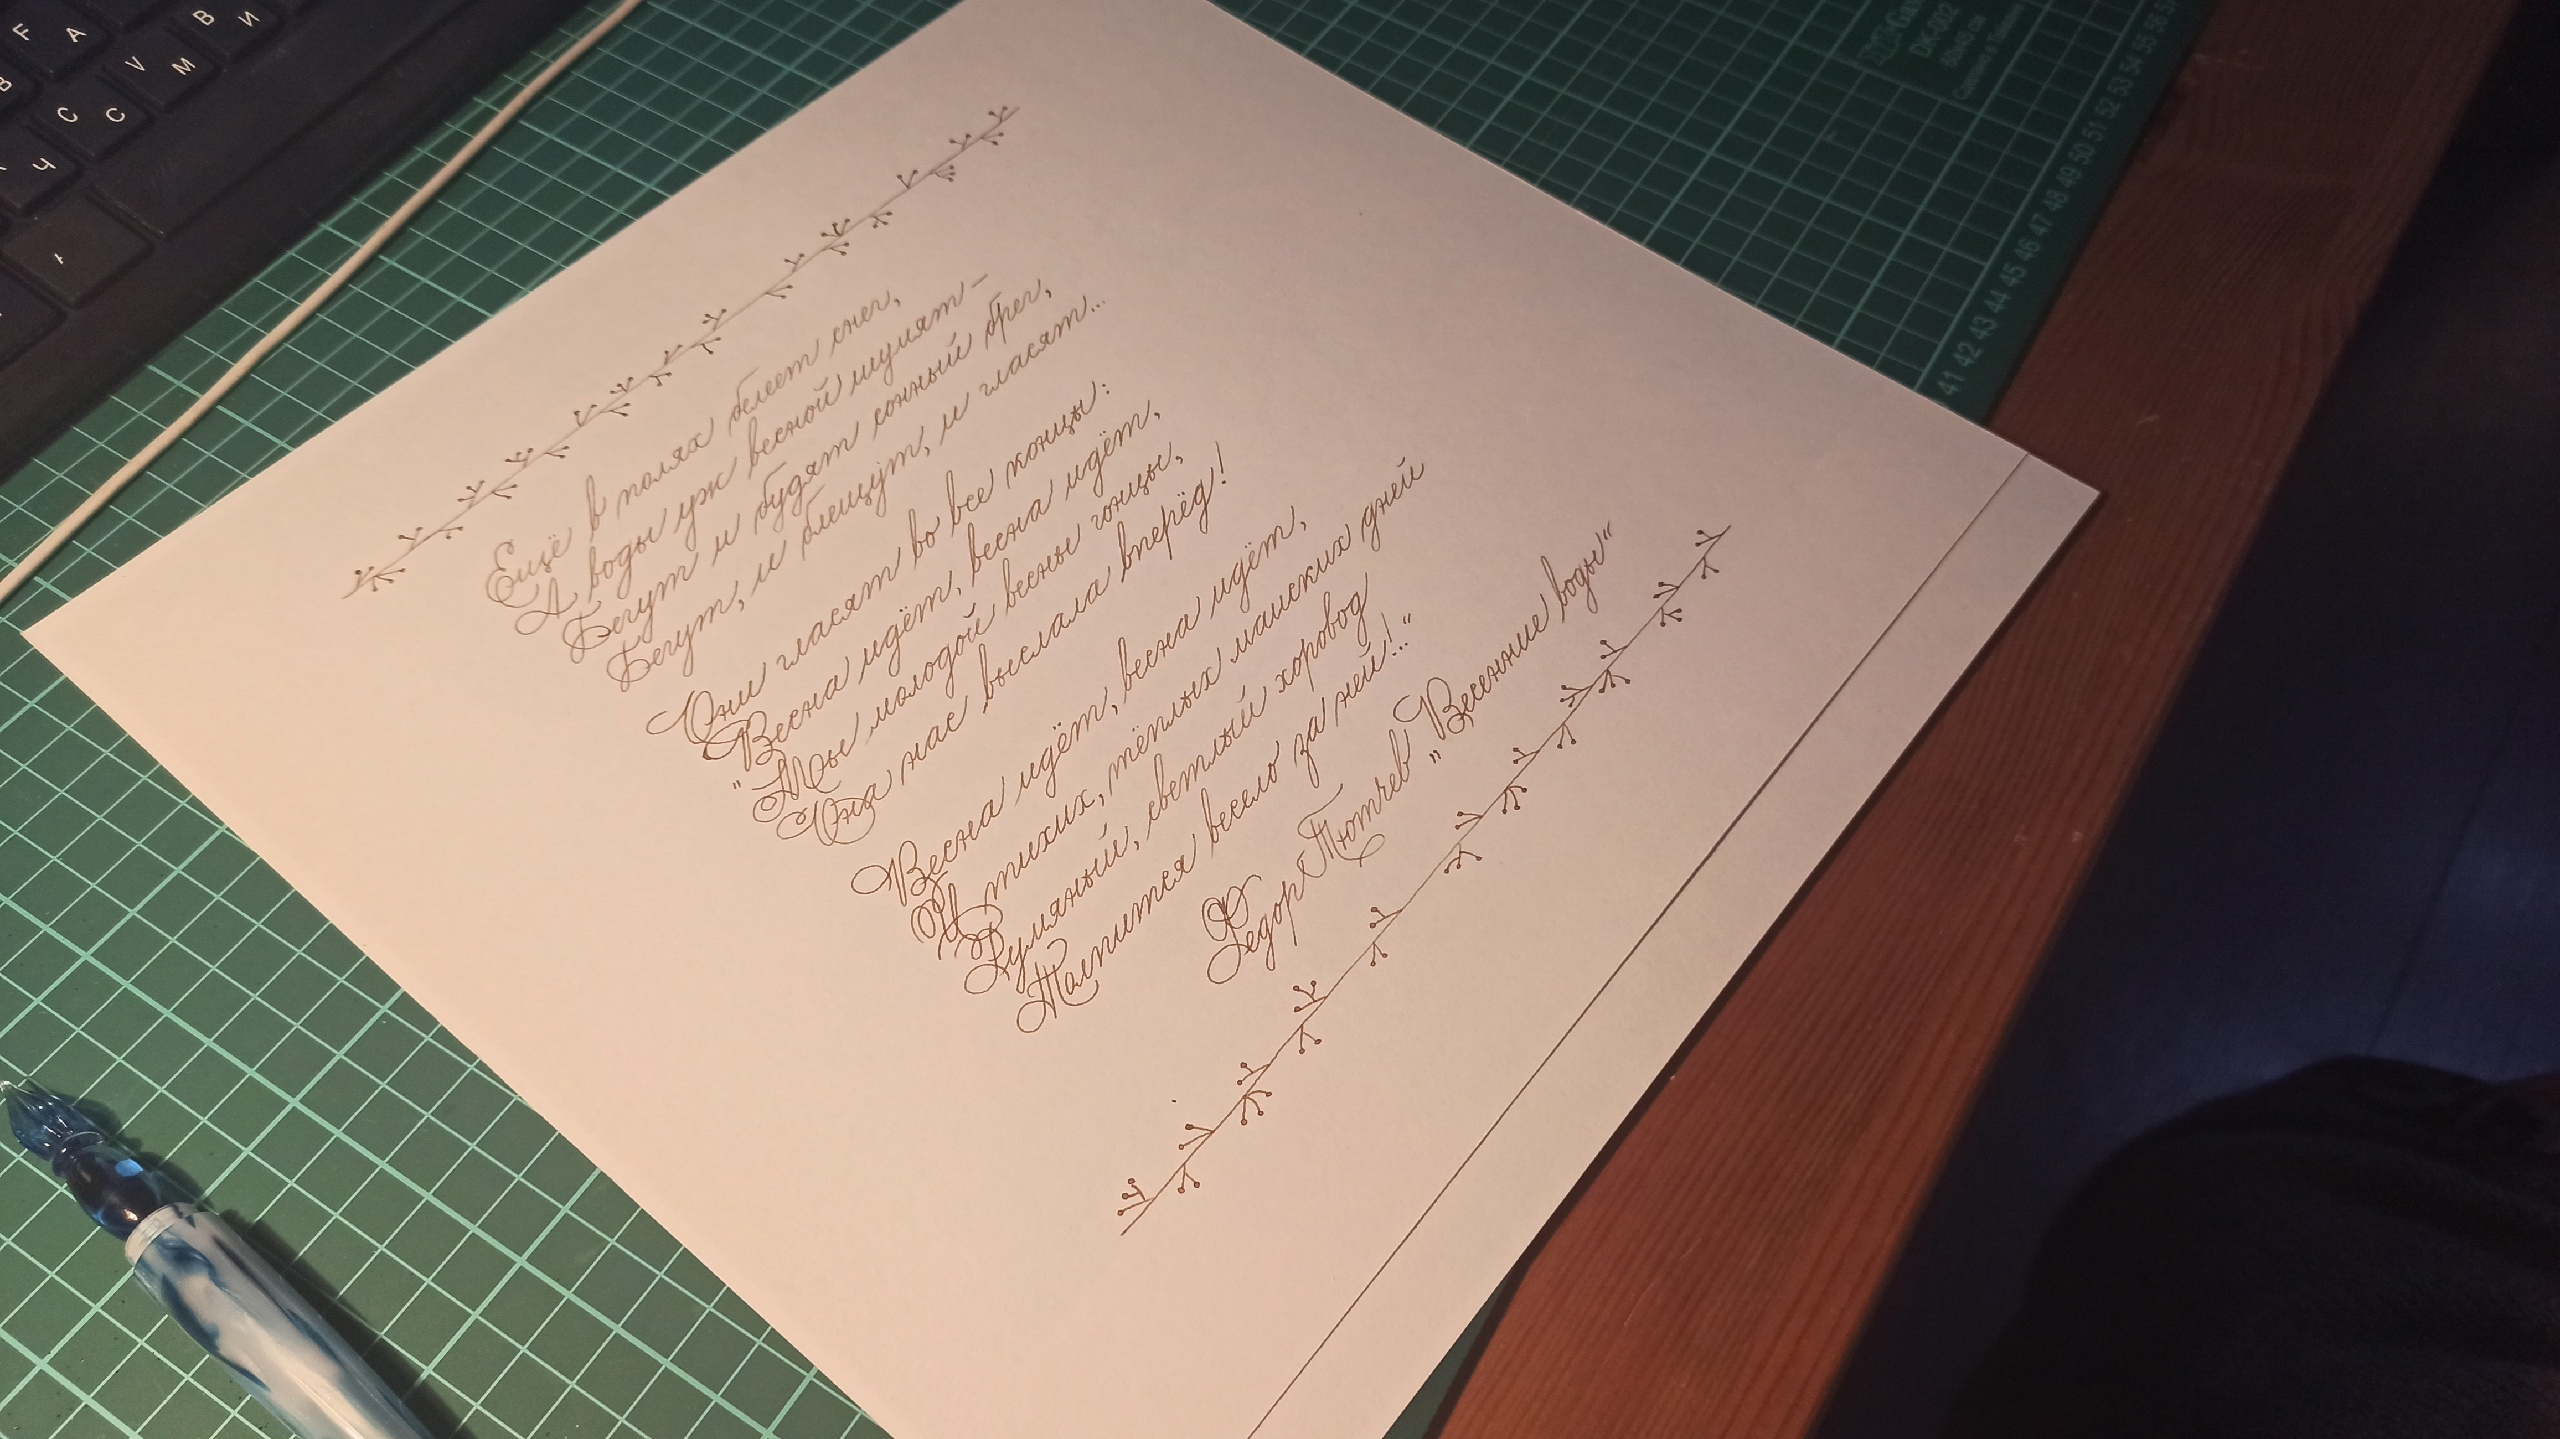 Ещё в полях белеет снег,
А воды уж весной шумят –
Бегут и будят сонный брег,
Бегут, и блещут, и гласят...
Они гласят во все концы:
Весна идёт, весна идёт,
"Мы молодой весны гонцы,
Она нас выслала вперёд!
Весна идёт, весна идёт,
И тихих, тёплых майских дней
Румяный, светлый хоровод
Толпится весело за ней!.."
Федор Тютчев „Весенние воды“
F А
V М
В И
C С
Ч
DK-002
60x45 см
41 42 43 44 45 46 47 48 49 50 51 52 53 54 55 56 57